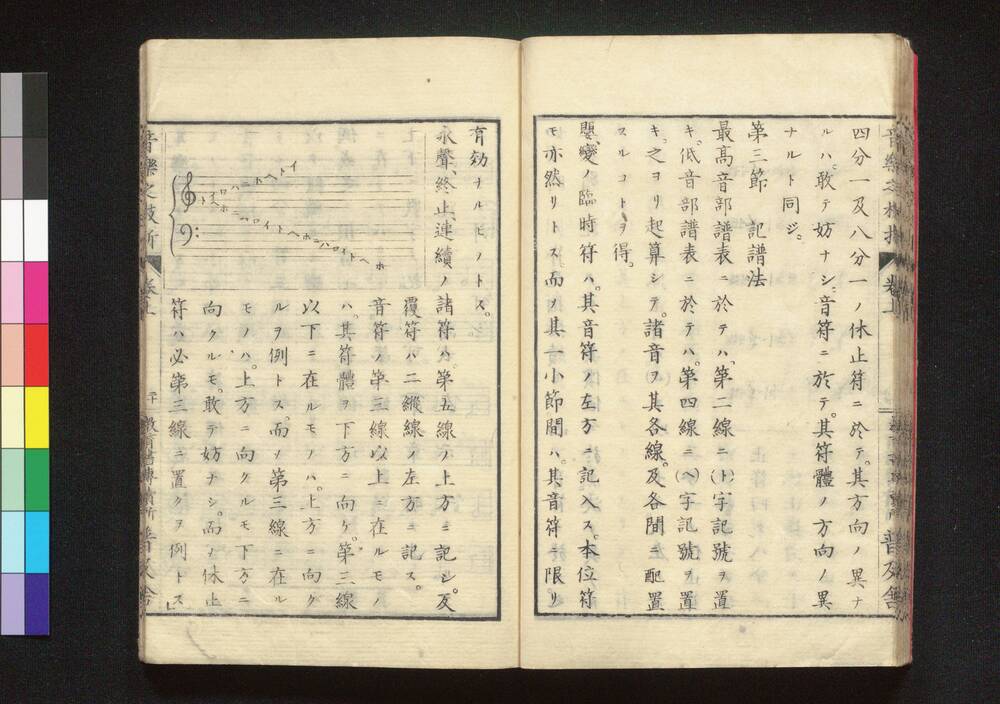 四分一及八分一ノ休止符ニ於テ。其方向ノ異ナ
ルハ。敢テ妨ナシ。音符ニ於テ。其符體ノ方向ノ異
ナルト同ジ。
第三節 記譜法
最高音部譜表ニ於テハ。第二線ニ(ト)字記號ヲ置
キ。低音部譜表ニ於テハ。第四線ニ(ヘ)字記號ヲ置
キ。之ヨリ起算シテ。諸音ヲ其各線。及各間ニ配置
スルコトヲ得。
嬰。變ノ臨時符ハ。其音符ノ左方ニ記入ス。本位符
モ亦然リトス而ノ其一小節間ハ。其音符ニ限リ。
有効ナルモノトス。
永聲、終止、連續ノ諸符ハ。第五線ノ上方ニ記シ。反
覆符ハ二縱線ノ左方ニ記ス。
音符ノ第三線以上ニ在ルモノ
ハ。其符體ヲ下方ニ向ケ。第三線
以下ニ在ルモノハ。上方ニ向ク
ルヲ例トス。而ノ第三線ニ在ル
モノハ。上方ニ向クルモ下方ニ
向クルモ。敢テ妨ナシ。而ノ休止
符ハ必第三線ニ置クヲ例トス
卷上
普及舍